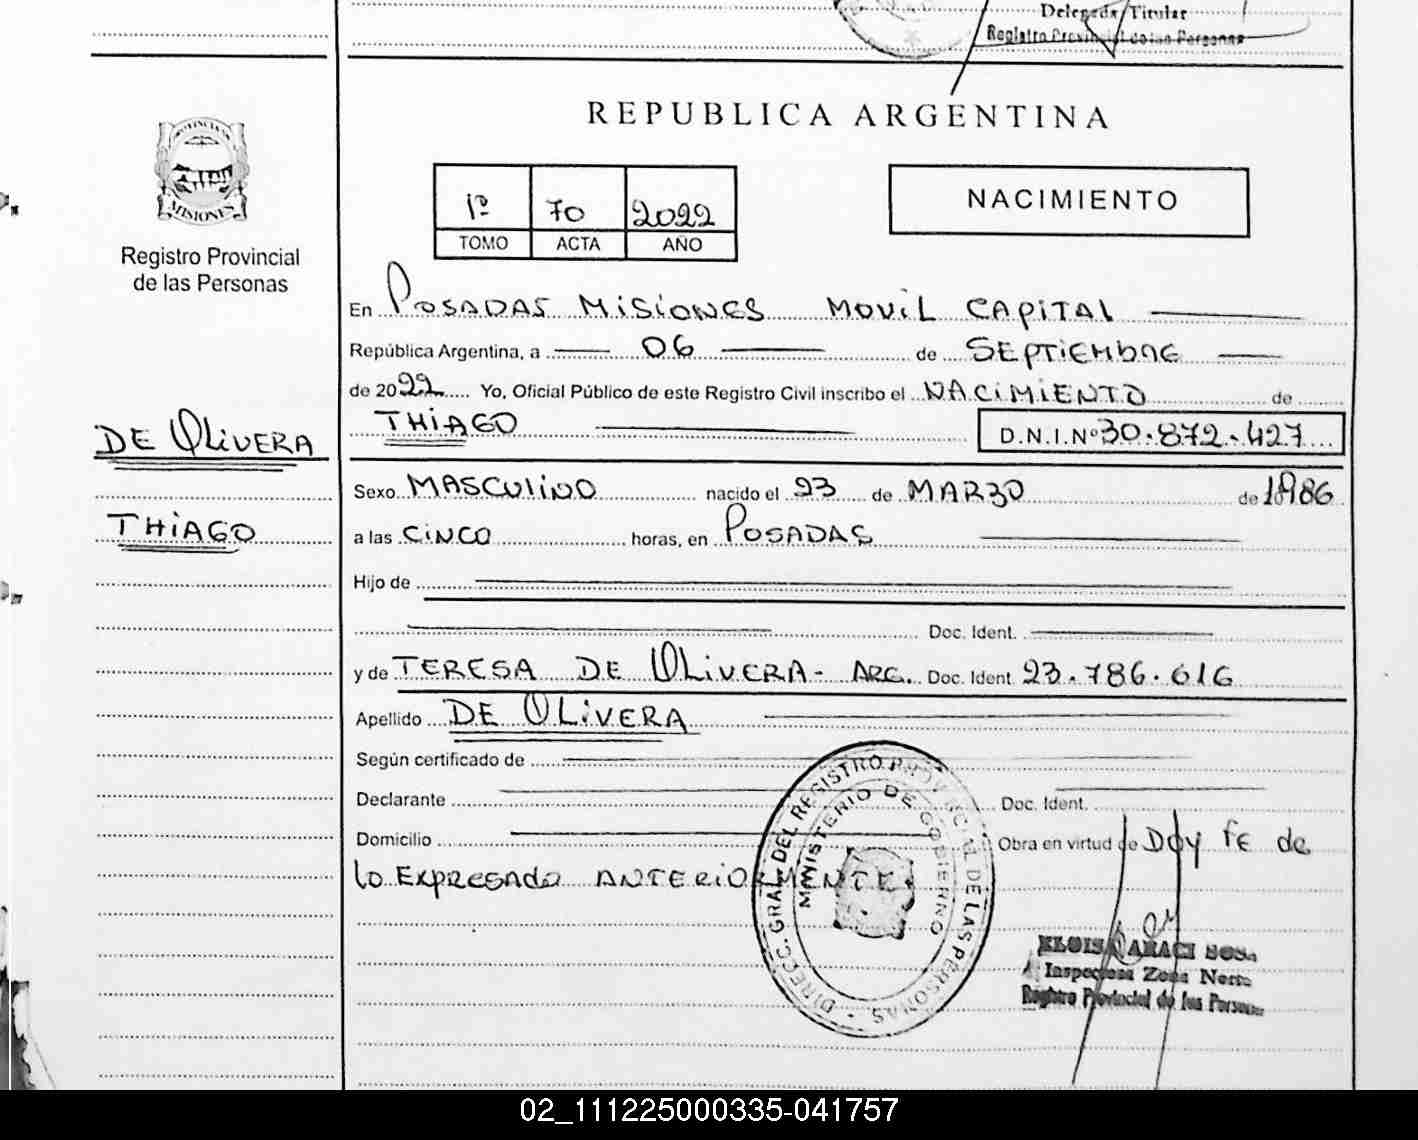 Delegada Titular
Registro Provincial de las Personas
REPUBLICA ARGENTINA
PROVINCIA DE
MISIONES
Registro Provincial
de las Personas
1º 70 2022
TOMO ACTA AÑO
NACIMIENTO
En POSADAS MISIONES MOVIL CAPITAL
República Argentina, a 06 de SEPTIEMBRE
de 2022 Yo, Oficial Público de este Registro Civil inscribo el NACIMIENTO de
THIAGO D.N.I.Nº 30.872.427
DE OLIVERA
THIAGO
Sexo MASCULINO nacido el 23 de MARZO de 1986
a las CINCO horas, en POSADAS
Hijo de
Doc. Ident.
y de TERESA DE OLIVERA - ARG. Doc. Ident 23.786.616
Apellido DE OLIVERA
Según certificado de
Declarante Doc. Ident.
Domicilio Obra en virtud de Doy FE de
lo EXPRESADO ANTERIORMENTE.
DIRECC. GRAL. DEL REGISTRO PROVINCIAL DE LAS PERSONAS
MINISTERIO DE GOBIERNO
ARACI SOSA
Inspectora Zona Norte
Registro Provincial de las Personas
02_111225000335-041757